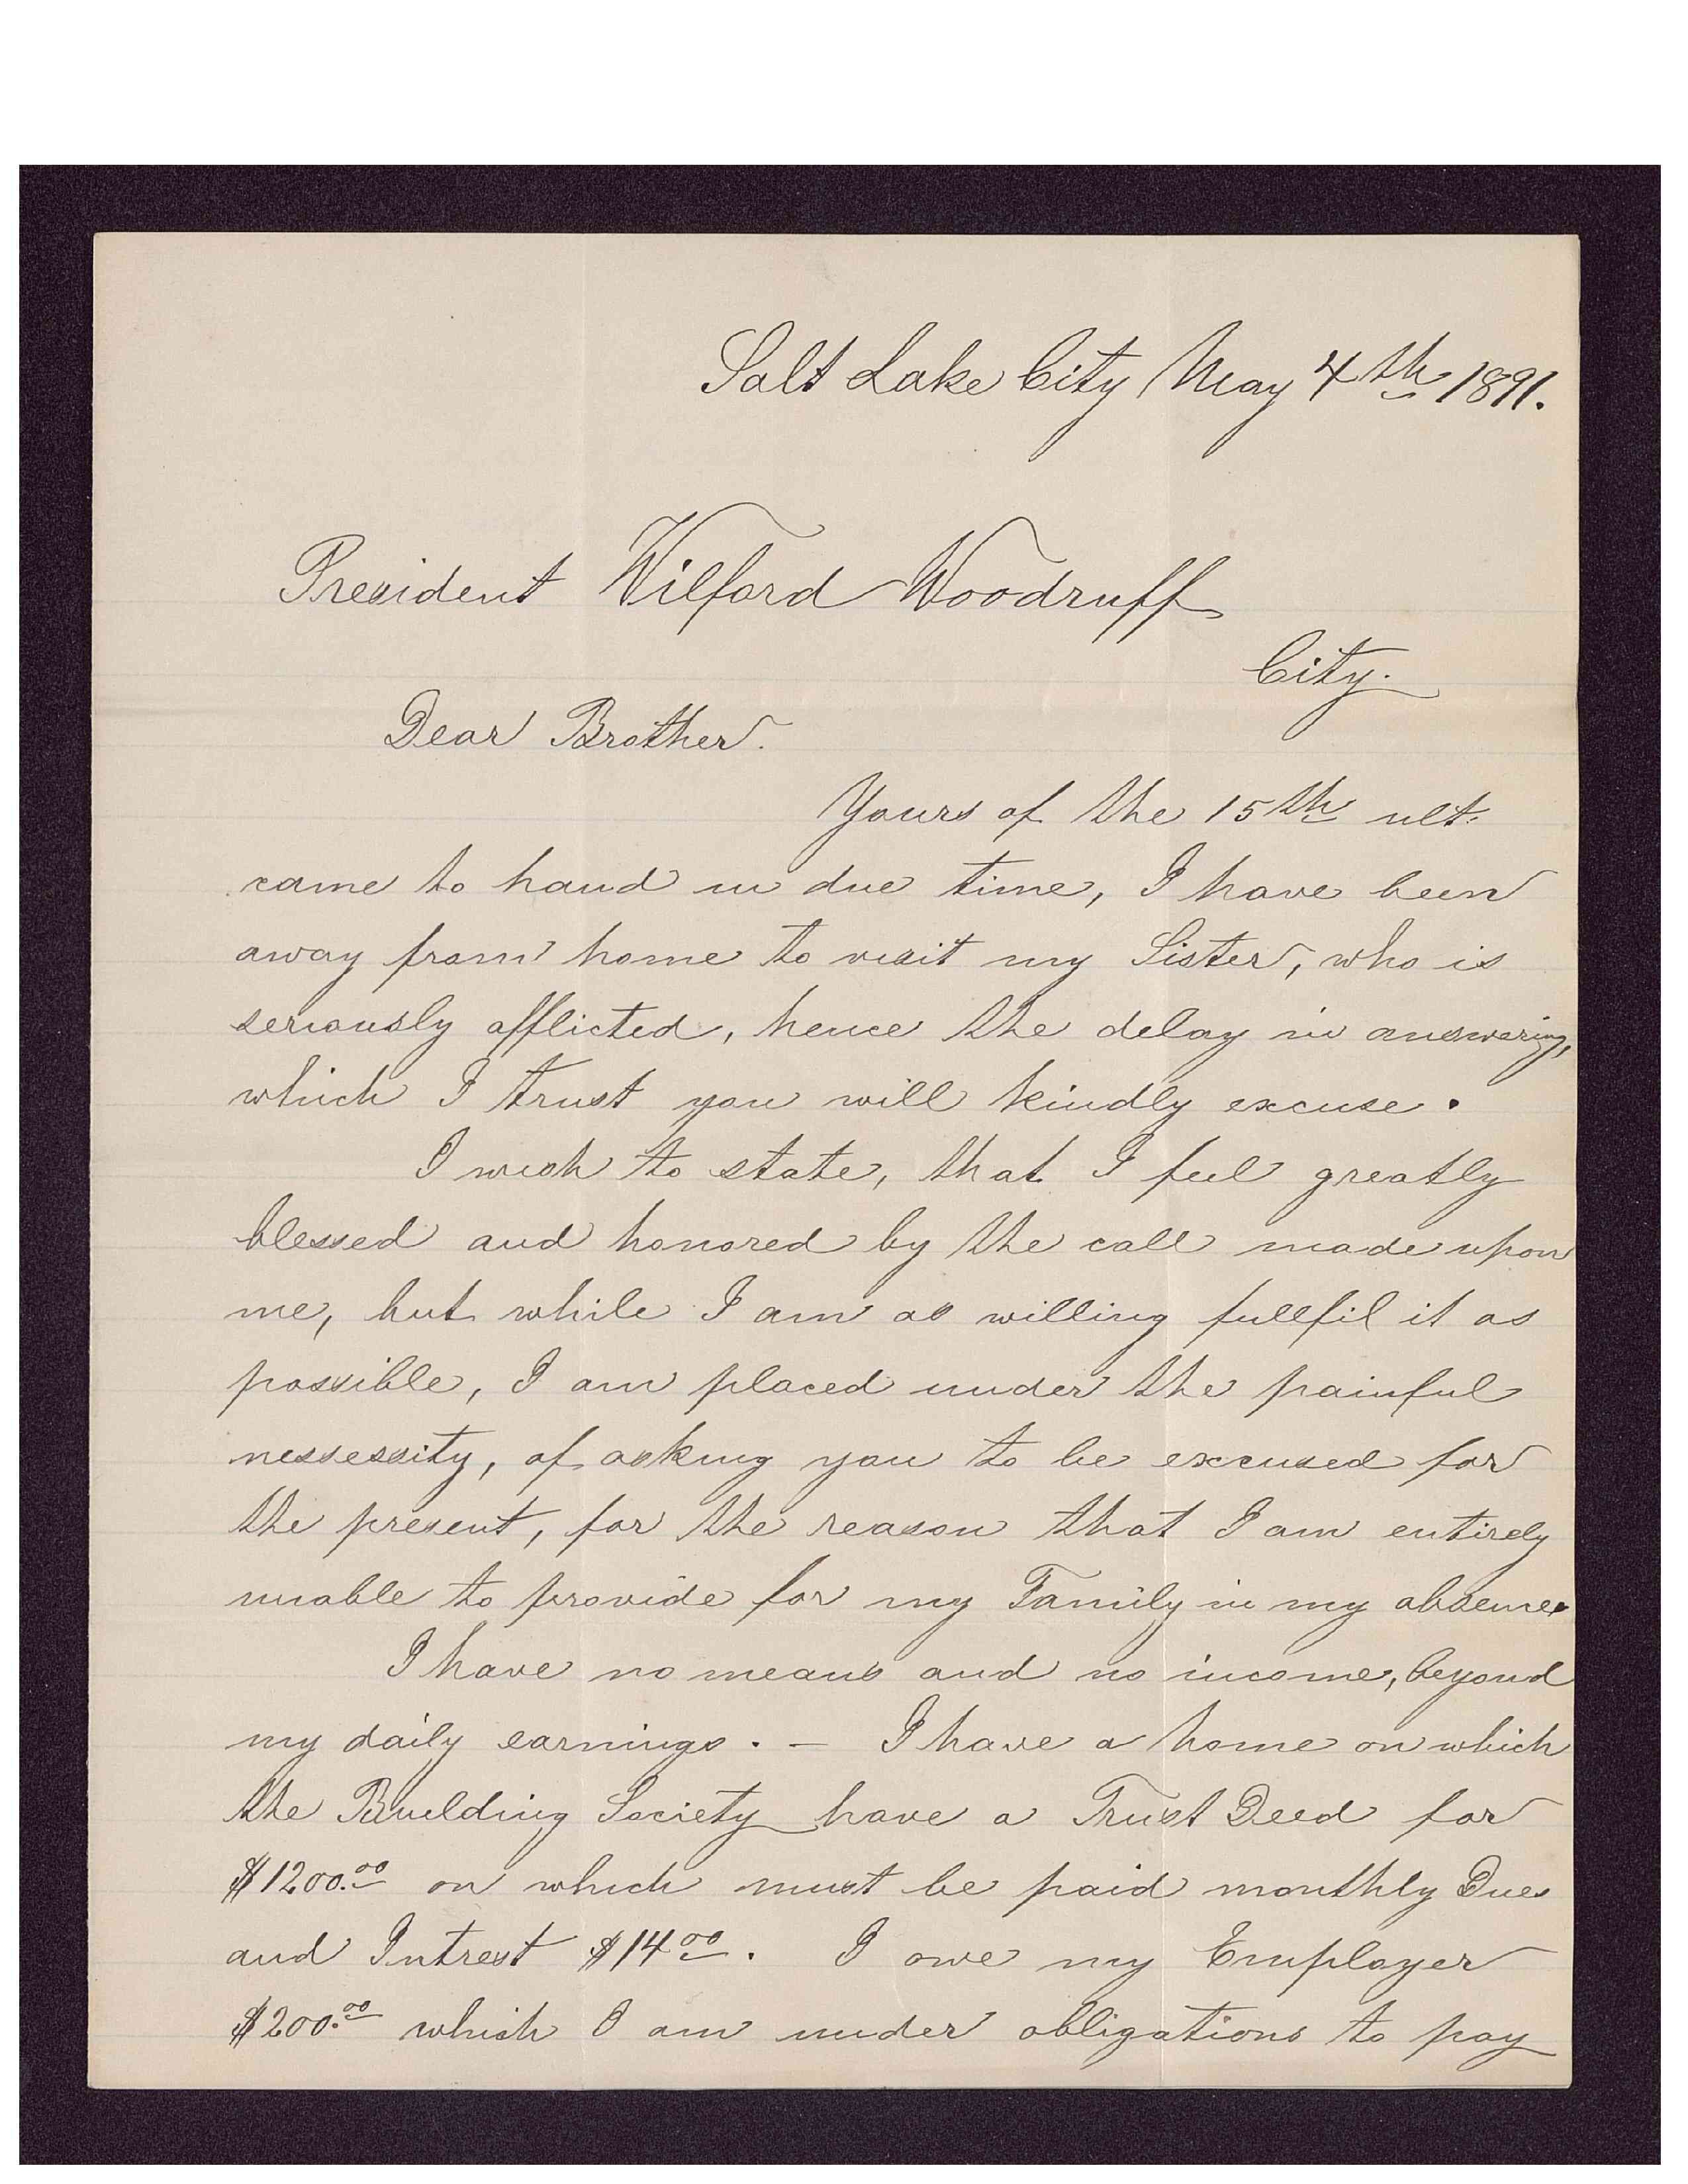 Salt Lake City May 4th 1891.
President Wilford Woodruff
City.
Dear Brother.
Yours of the 15th ult.
came to hand in due time, I have been
away from home to visit my Sister, who is
seriously afflicted, hence the delay in answering,
which I trust you will kindly excuse.
I wish to state, that I feel greatly
blessed and honored by the call made upon
me, but while I am as willing fullfil it as
possible, I am placed under the painful
nessessity, of asking you to be excused for
the present, for the reason that I am entirely
unable to provide for my Family in my absence.
I have no means and no income, beyond
my daily earnings. — I have a home on which
the Buelding Society have a Trust Deed for
$1200.00 on which must be paid monthly Dues
and Intrest $14.00. I owe my Employer
$200.00 which I am under obligations to pay